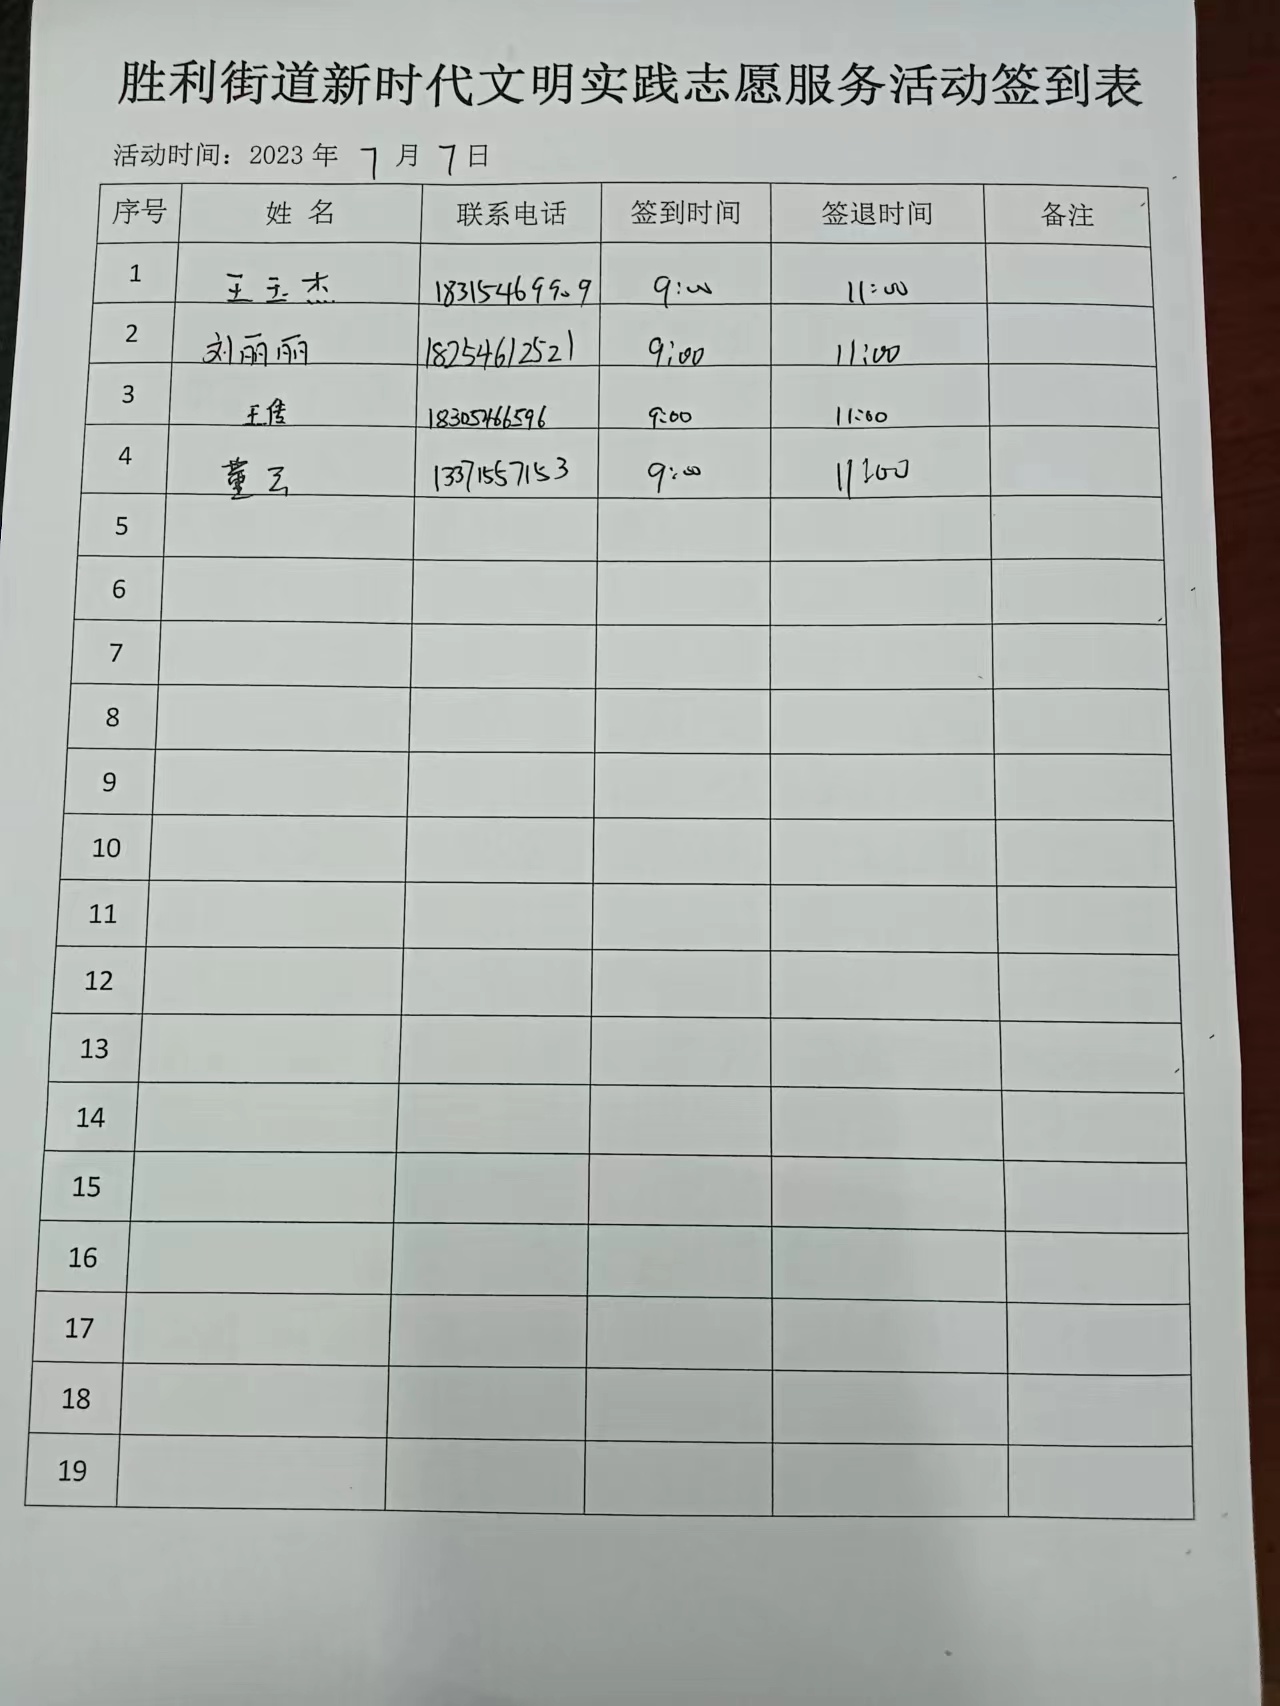 胜利街道新时代文明实践志愿服务活动签到表
活动时间：2023 年 7 月 7 日
序号 姓 名 联系电话 签到时间 签退时间 备注
1 王玉杰 18315469909 9:00 11:00
2 刘丽丽 18254612521 9:00 11:00
3 王 18305466596 9:00 11:00
4 董云 13371557153 9:00 11:00
5
6
7
8
9
10
11
12
13
14
15
16
17
18
19